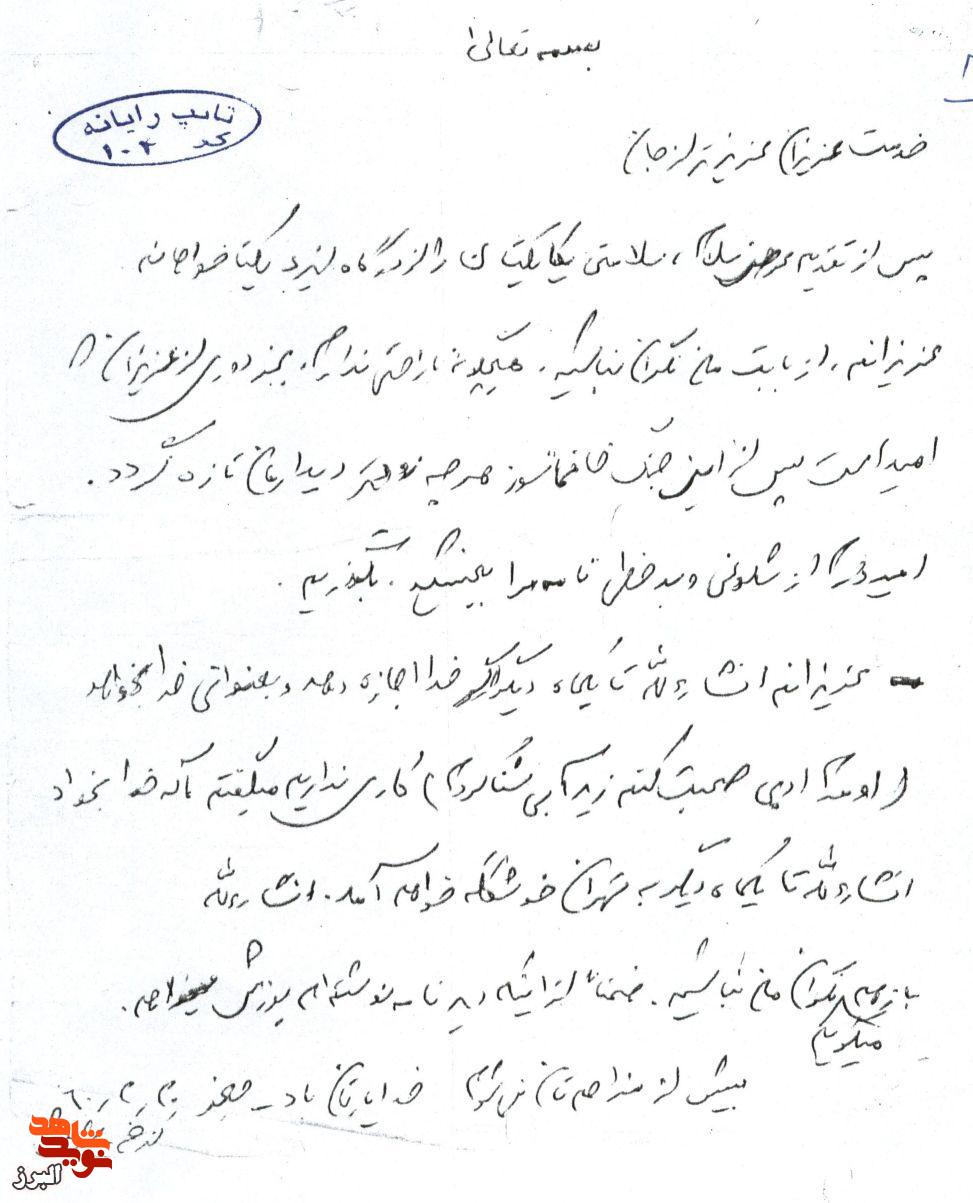 بسمه تعالی
تایپ رایانه
کد ۱۰۴
خدمت عزیزان عزیزتر از جان
پس از تقدیم عرض سلام، سلامتی یکایکتان را از درگاه ایزد یکتا خواهانم
عزیزانم، از بابت من نگران نباشید. هیچگونه ناراحتی ندارم. بجز دوری از عزیزان
امید است پس از این جنگ خانمانسوز هرچه زودتر دیدارمان تازه گردد.
امیدوارم از شلوغی و بدخطی نامه مرا ببخشید. بگذریم.
- عزیزانم انشاءالله تا یکماه دیگر اگر خدا اجازه دهد و بعنوانی خدا بخواهد
( اومدم ادبی صحبت کنم زیرآبی شنا کردم ) کاری نداریم میگفتم اگه خدا بخواد
انشاءالله تا یکماه دیگر به تهران خوشگله خواهم آمد. انشاءالله
باز هم میگویم نگران من نباشید. ضمناً از اینکه دیر نامه نوشته‌ام پوزش میخواهم.
بیش از این مزاحمتان نمی‌شوم خدا یارتان باد
نوید شاهد
البرز